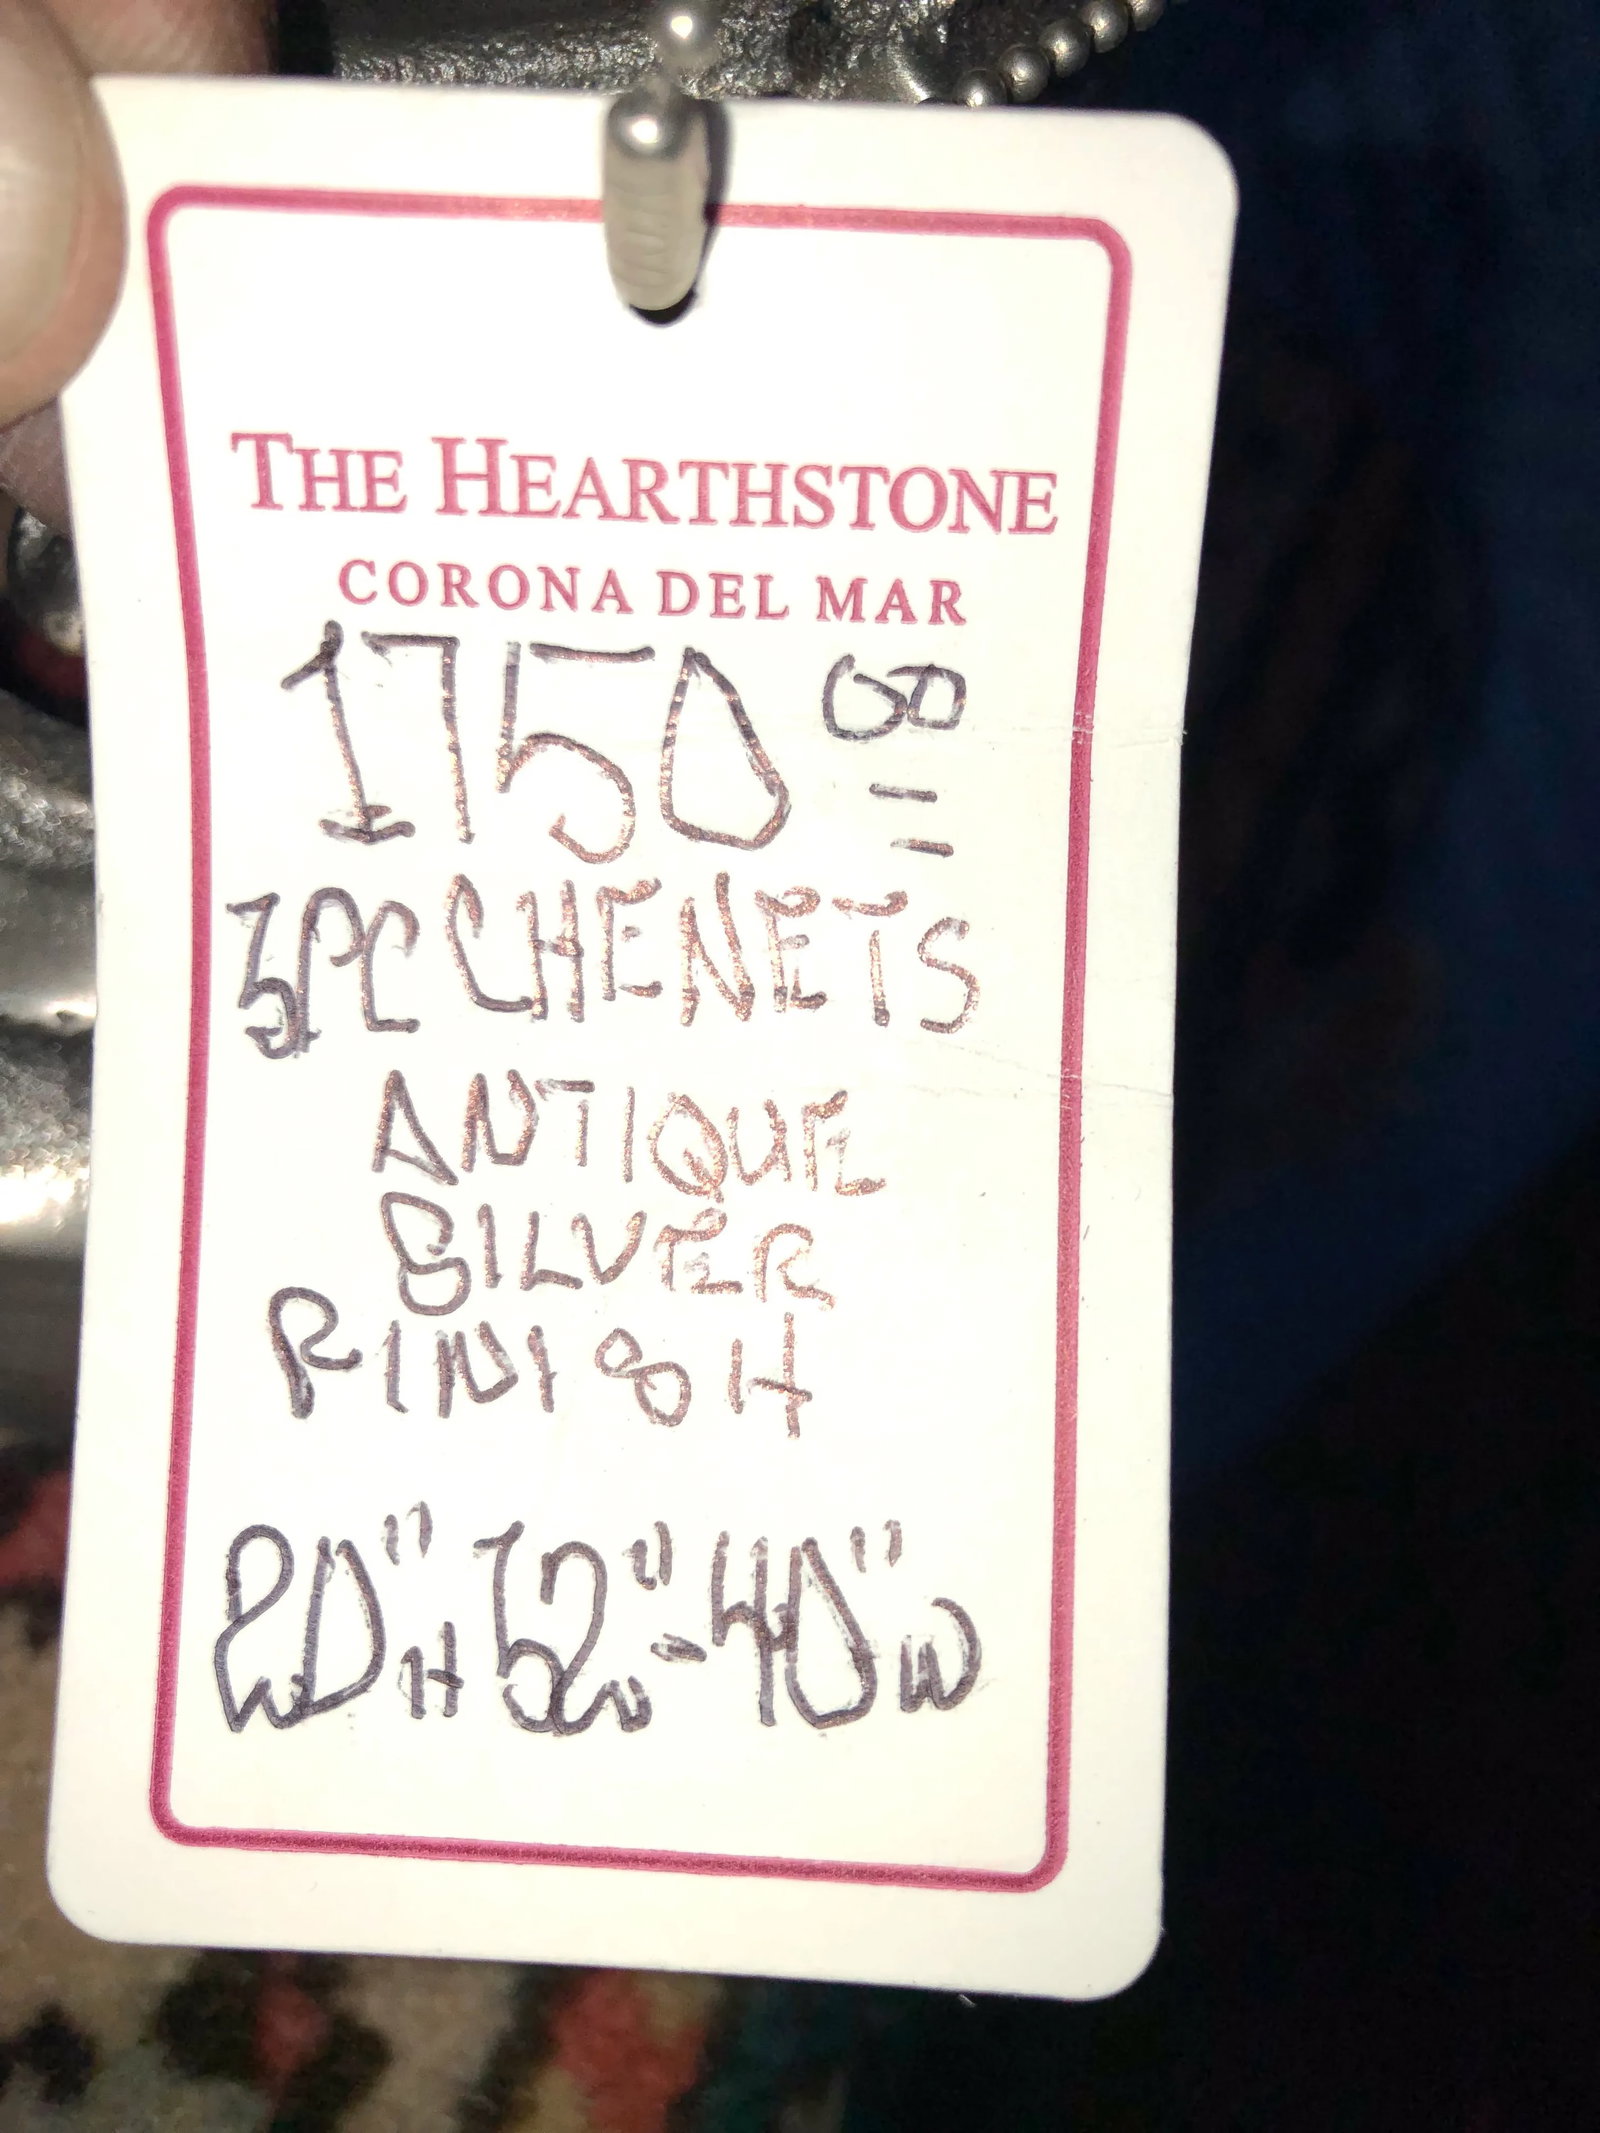 THE HEARTHSTONE
CORONA DEL MAR
1750 00
3PC CHENETS
ANTIQUE
SILVER
FINISH
20"H 32"W-40"W